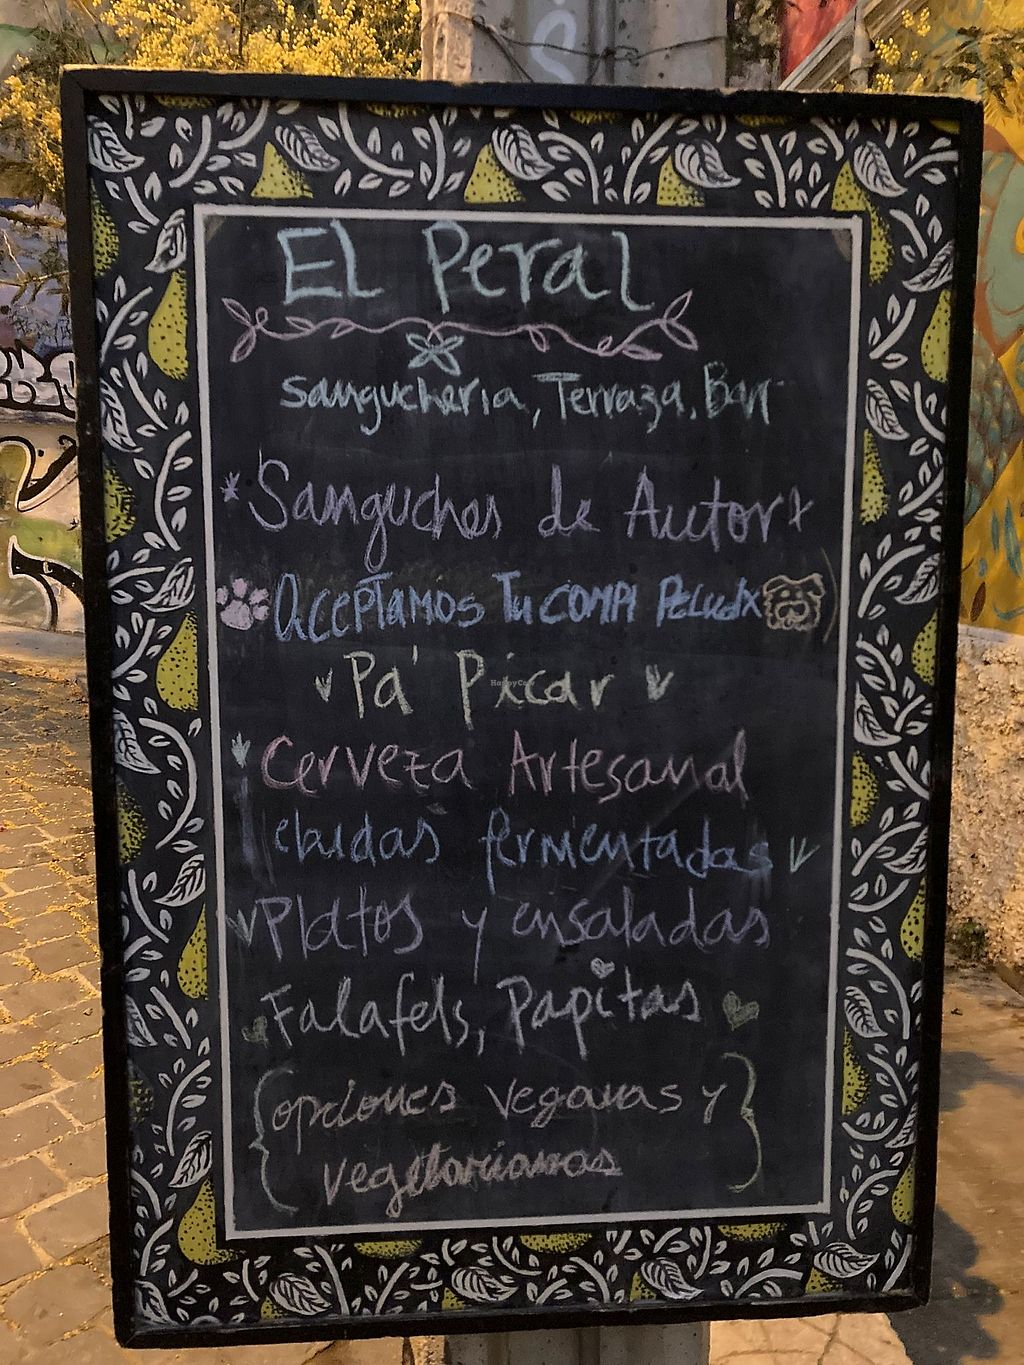 El Peral
sangucheria, Terraza, Bar
*Sanguches de Autor*
Aceptamos Tu compi Peludx
Pa' Picar
HappyCow
Cerveza Artesanal
ebidas fermentadas
Platos y ensaladas
Falafels, Papitas
{opciones veganas y
vegetarianas}